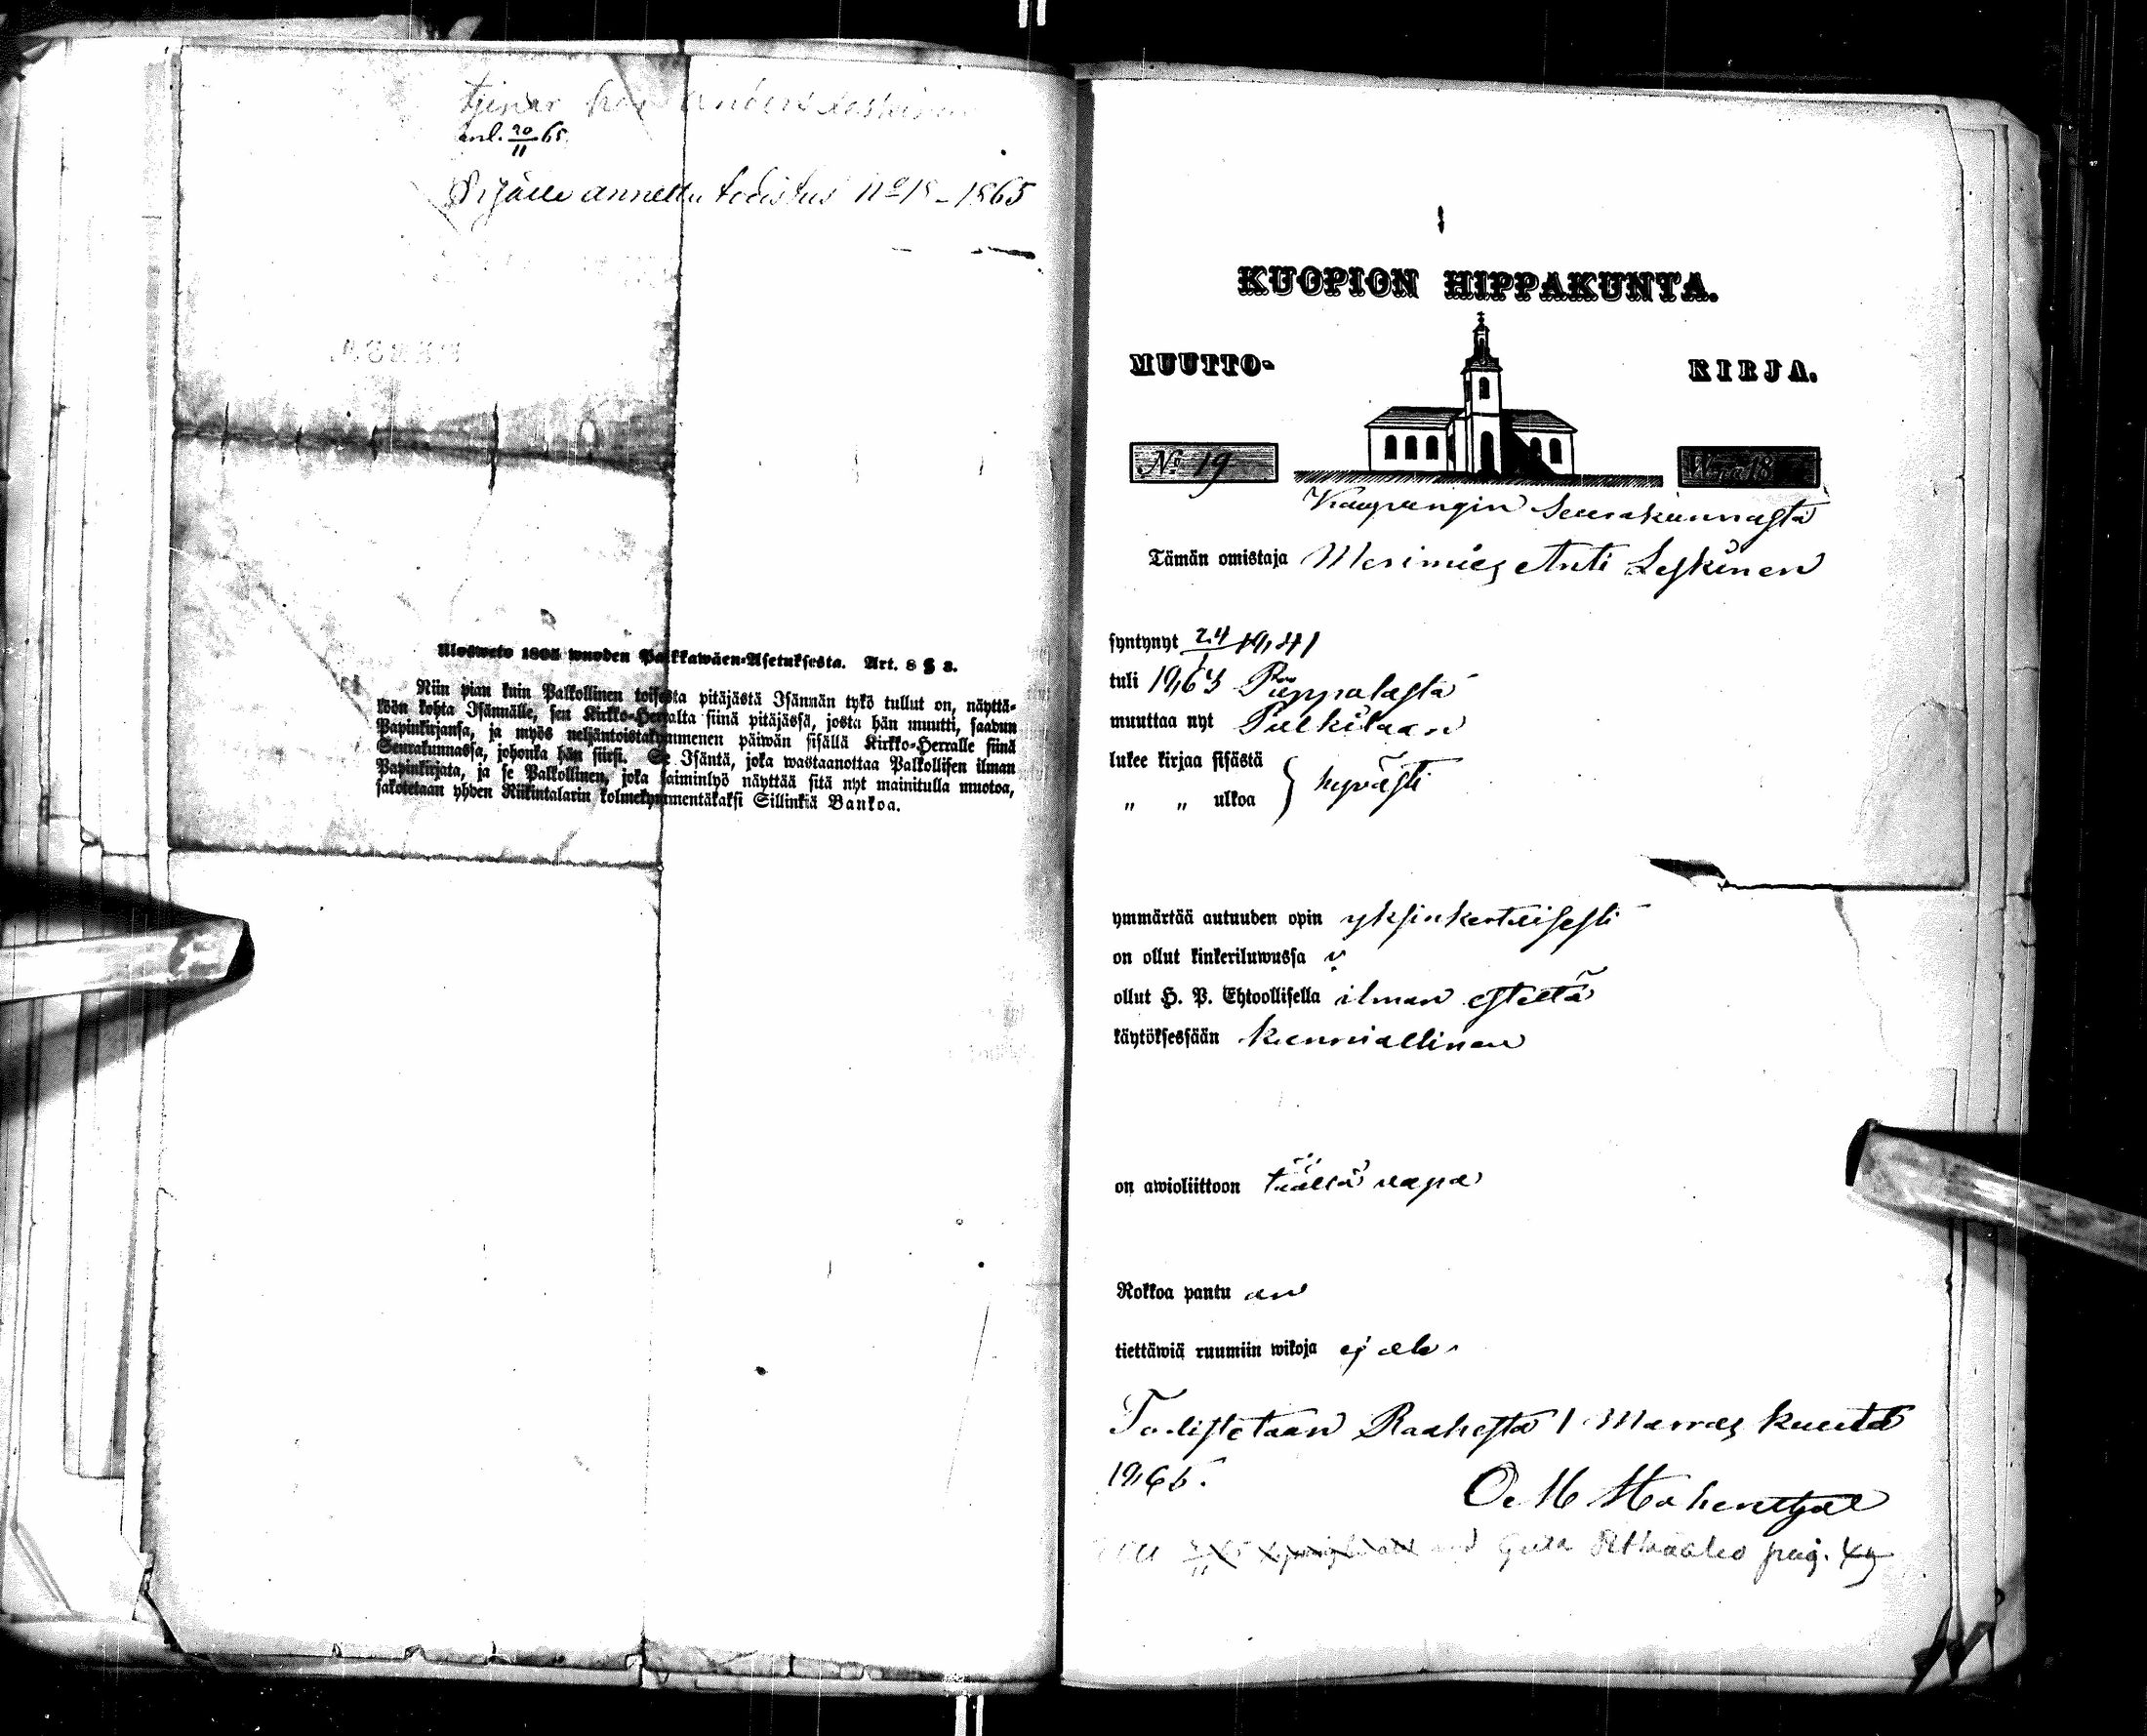 tjenar hos Anders Leskinen
anl. 20/11 65.
annettu todistus No 18 - 1865
Ulosweto 1805 wuoden Palkkawäen-Asetuksesta. Art. 8 § 3.
Niin pian kuin Palkollinen toisesta pitäjästä Isännän tykö tullut on, näyttä-
köön kohta Isännälle, sen Kirkko-Herralta siinä pitäjässä, josta hän muutti, saadun
Papinkirjansa, ja myös neljäntoistakymmenen päiwän sisällä Kirkko-Herralle siinä
Seurakunnassa, johonka hän siirsi. Se Isäntä, joka wastaanottaa Palkollisen ilman
Papinkirjata, ja se Palkollinen, joka laiminlyö näyttää sitä nyt mainitulla muotoa,
sakotetaan yhden Riikintalarin kolmekymmentäkaksi Sillinkiä Bankoa.
KUOPION HIPPAKUNTA.
MUUTTO- KIRJA.
No 19
Kaupungin Seurakunnasta
Tämän omistaja Merimies Anti Leskinen
syntynyt 24/1 1841
tuli 1863 Piippolasta
muuttaa nyt Pulkilaan
lukee kirjaa sisästä
" " ulkoa } hyvästi
ymmärtää autuuden opin yksinkertaisesti
on ollut kinkeriluwussa
ollut H. P. Ehtoollisella ilman estettä
käytöksessään kunniallinen
on awioliittoon täältä vapa
Rokkoa pantu on
tiettäwiä ruumiin wikoja ej ole
Todistetaan Raahesta 1 Marras kuuta
1865.
pag.